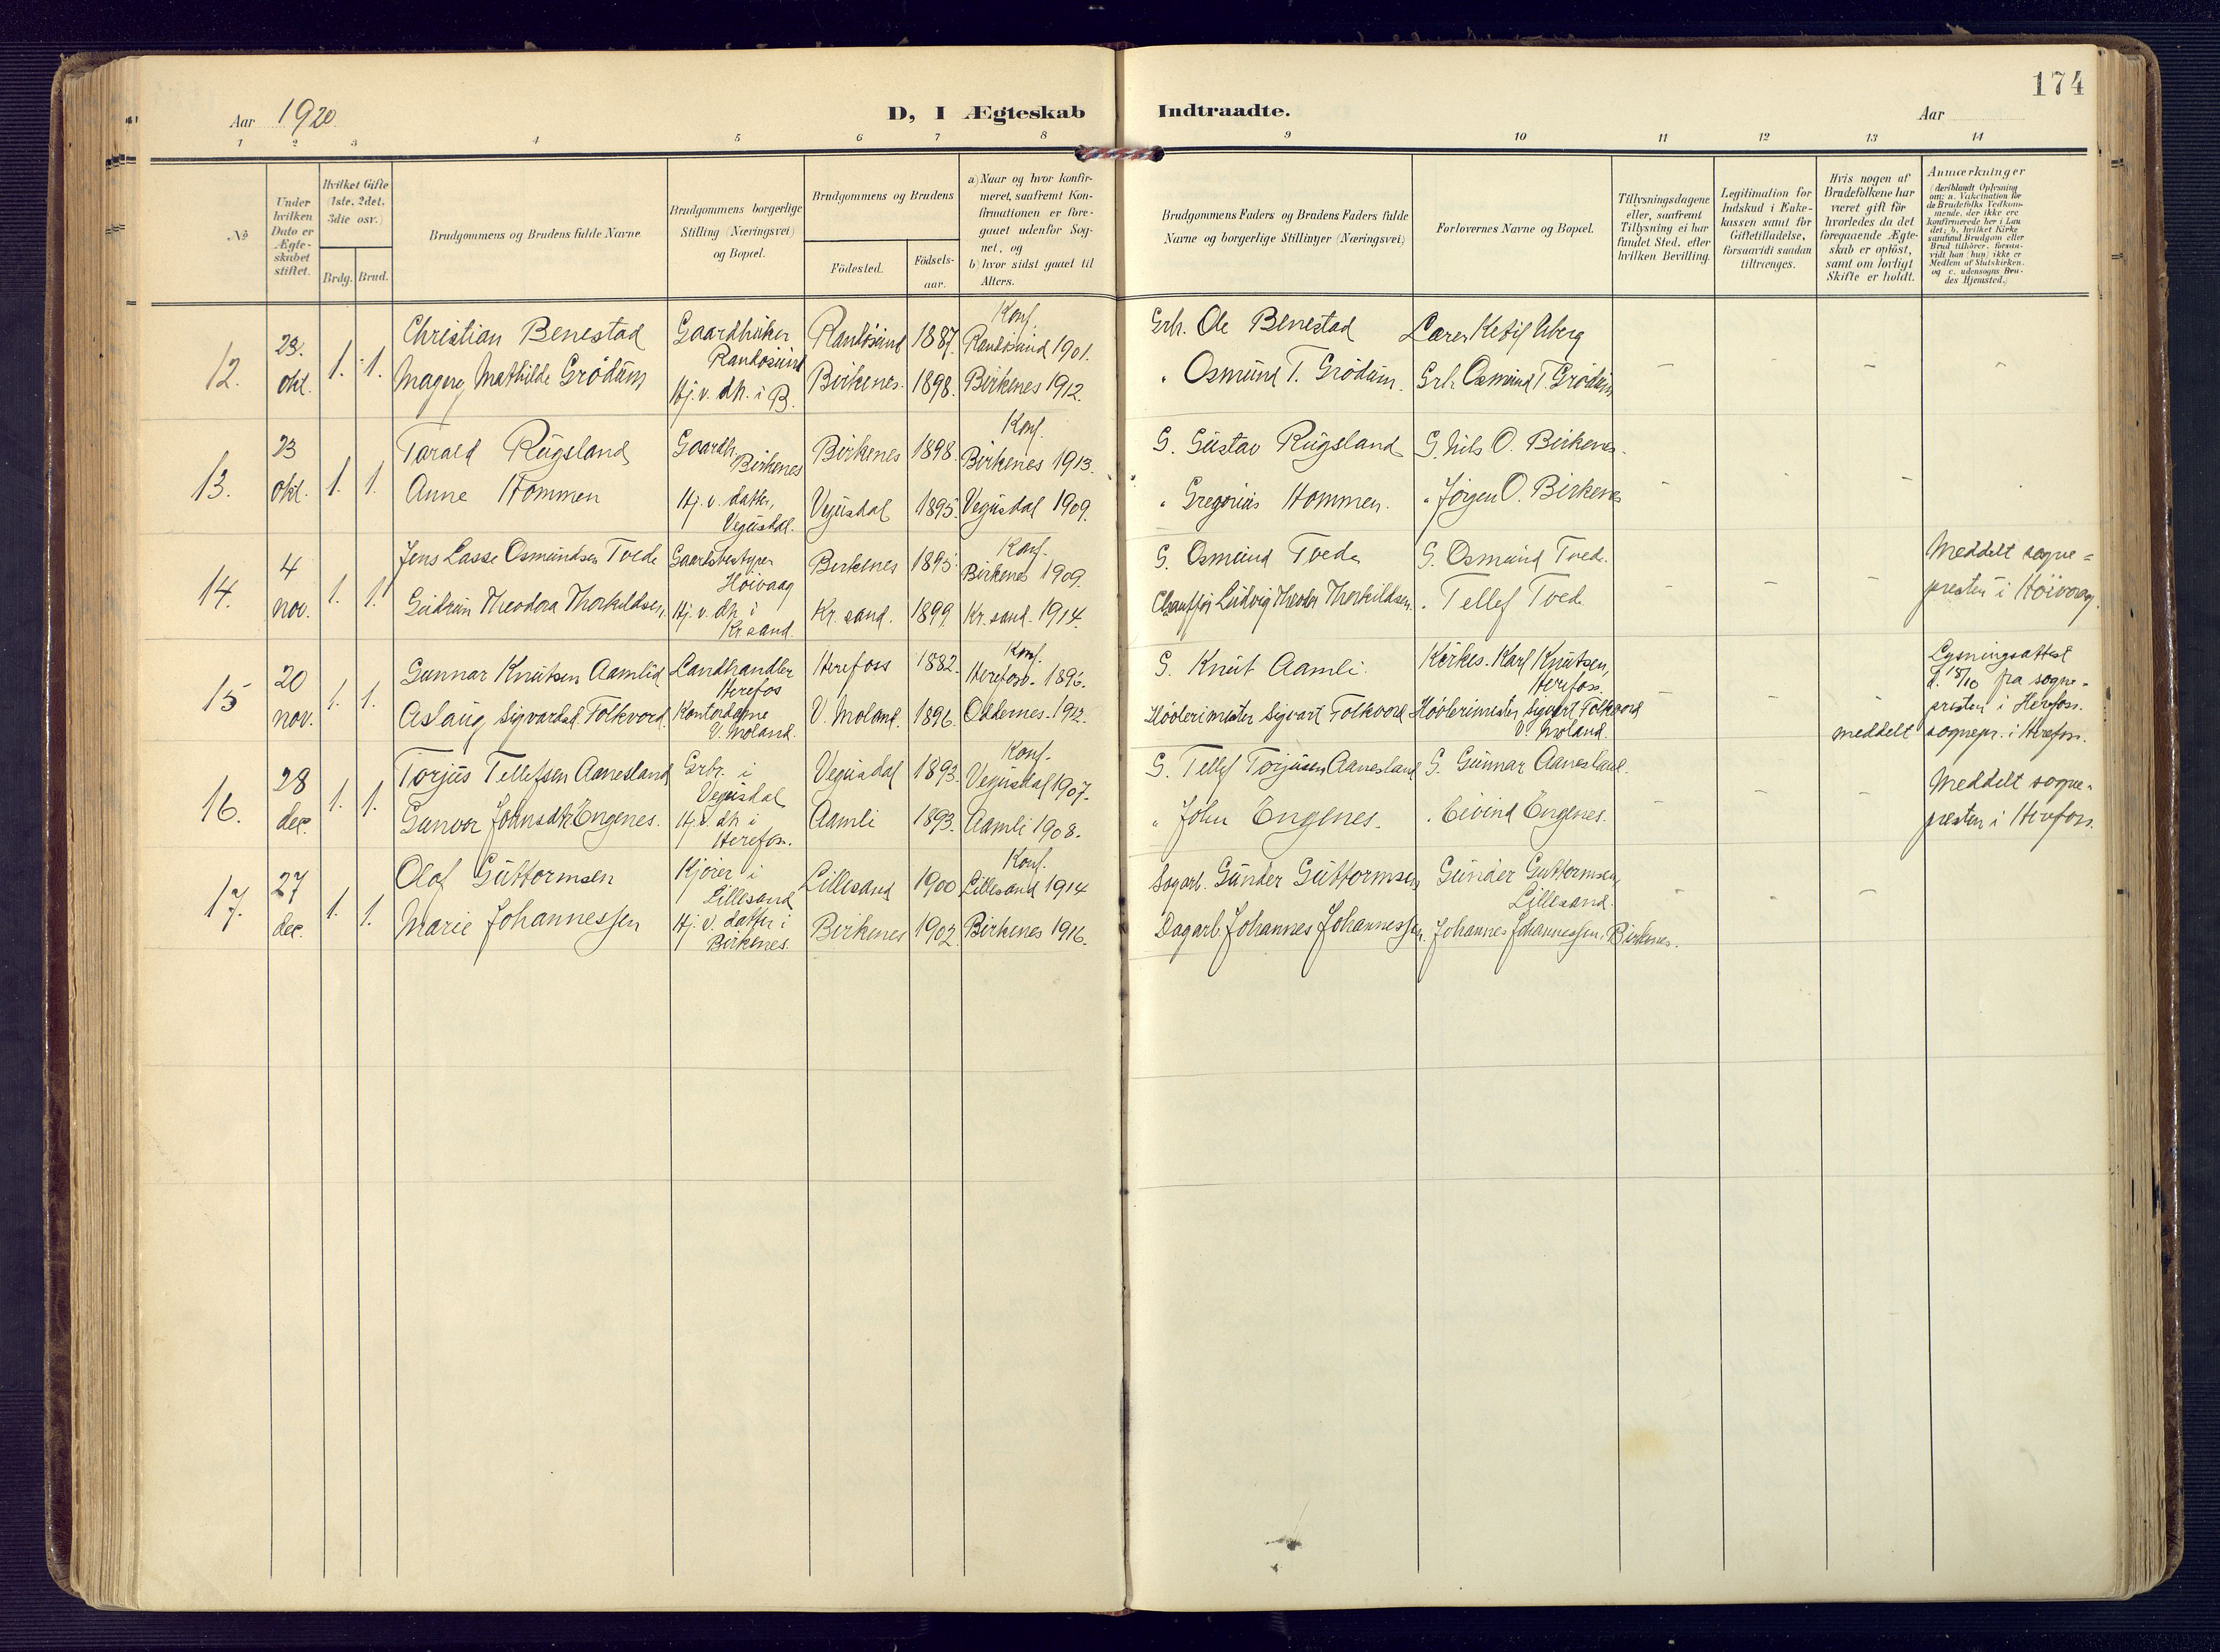 174
Aar 1920
D, I Ægteskab Indtraadte.
Aar
1 2 3 4 5 6 7 8 9 10 11 12 13 14
No
Under hvilken Dato er Ægteskabet stiftet.
Hvilket Gifte (1ste, 2det, 3die osv.)
Brdg. Brud.
Brudgommens og Brudens fulde Navne
Brudgommens borgerlige Stilling (Næringsvei) og Bopæl.
Brudgommens og Brudens
Födested.
Födsels-aar.
a) Naar og hvor konfirmeret, saafremt Konfirmationen er foregaaet udenfor Sognet, og
b) hvor sidst gaaet til Alters.
Brudgommens Faders og Brudens Faders fulde Navne og borgerlige Stillinger (Næringsvei)
Forlovernes Navne og Bopæl.
Tillysningsdagene eller, saafremt Tillysning ei har fundet Sted, efter hvilken Bevilling.
Legitimation for Indskud i Enkekassen samt for Giftetilladelse, forsaavidt saadan tiltrænges.
Hvis nogen af Brudefolkene har været gift för hvorledes da det foregaaende Ægteskab er oplöst, samt om lovligt Skifte er holdt.
Anmærkninger
(deriblandt Oplysning om: a. Vakcination för de Brudefolks Vedkommende, der ikke ere konfirmerede her i Landet; b. hvilket Kirkesamfund Brudgom eller Brud tilhörer, forsaavidt han (hun) ikke er Medlem af Statskirken, og c. udensogns Brudes Hjemsted.)
12. 23. okt. 1. 1.
Christian Benestad Gaardbruker Randösund Randösund 1887. Konf. Randösund 1901. Grb. Ole Benestad Lærer Ketil Uberg
Magny Mathilde Grödum Hj. v. dh. i B. Birkenes 1898. Birkenes 1912. " Osmund T. Grödum. Grb. Osmund T. Grödum
13. 23 okt. 1. 1.
Tarald Rugsland Gaardb. Birkenes Birkenes 1898. Konf. Birkenes 1913. G. Gustav Rugsland G. Nils O. Birkenes.
Anne Hommen Hj. v. datter, Vegusdal. Vegusdal 1895. Vegusdal 1909. " Gregorius Hommen. " Jörgen O. Birkenes
14. 4 nov. 1. 1.
Jens Lasse Osmundsen Tvede Gaardbestyrer Höivaag Birkenes 1895. Konf. Birkenes 1909. G. Osmund Tvede G. Osmund Tved.
Gudrun Theodora Thorkildsen Hj. v. dh. i Kr. sand. Kr. sand. 1899 Kr. sand. 1914. Chaufför Ludvig Theodor Thorkildsen. " Tellef Tved
Meddelt sogne=
presten i Höivaag.
15 20 nov. 1. 1.
Gunnar Knutsen Aamlid Landhandler Herefos Herefoss 1882. Konf. Herefoss. 1896. G. Knut Aamli. Kirkes. Karl Knutsen, Herefoss.
Aslaug Sigvardsd. Folkvord Kontordame V. Moland. V. Moland. 1896. Oddernes. 1912. Hövlerimester Sigvart Folkvord Hövlerimester Sigvart Folkvord V. Moland.
Lysningsattest
d. 18/10 fra sogne-
presten i Herefoss.
meddelt sognepr. i Herefoss.
16. 28 dec. 1. 1.
Torjus Tellefsen Aanesland Grbr. i Vegusdal Vegusdal 1893. Konf. Vegusdal 1907. G. Tellef Torjusen Aanesland G. Gunnar Aanesland.
Gunvor Johnsdtr Engenes. Hj. v. dh. i Herefoss. Aamli 1893. Aamli 1908. " John Engenes. " Eivind Engenes.
Meddelt sogne-
presten i Herefoss.
17. 27 dec. 1. 1.
Olaf Guttormsen Kjörer i Lillesand Lillesand 1900 Konf. Lillesand 1914 Gunder Guttormsen Gunder Guttormsen, Lillesand.
Marie Johannessen Hj. v. datter i Birkenes. Birkenes 1902. Birkenes 1916. Dagarb. Johannes Johannessen. Johannes Johannessen. Birkenes.